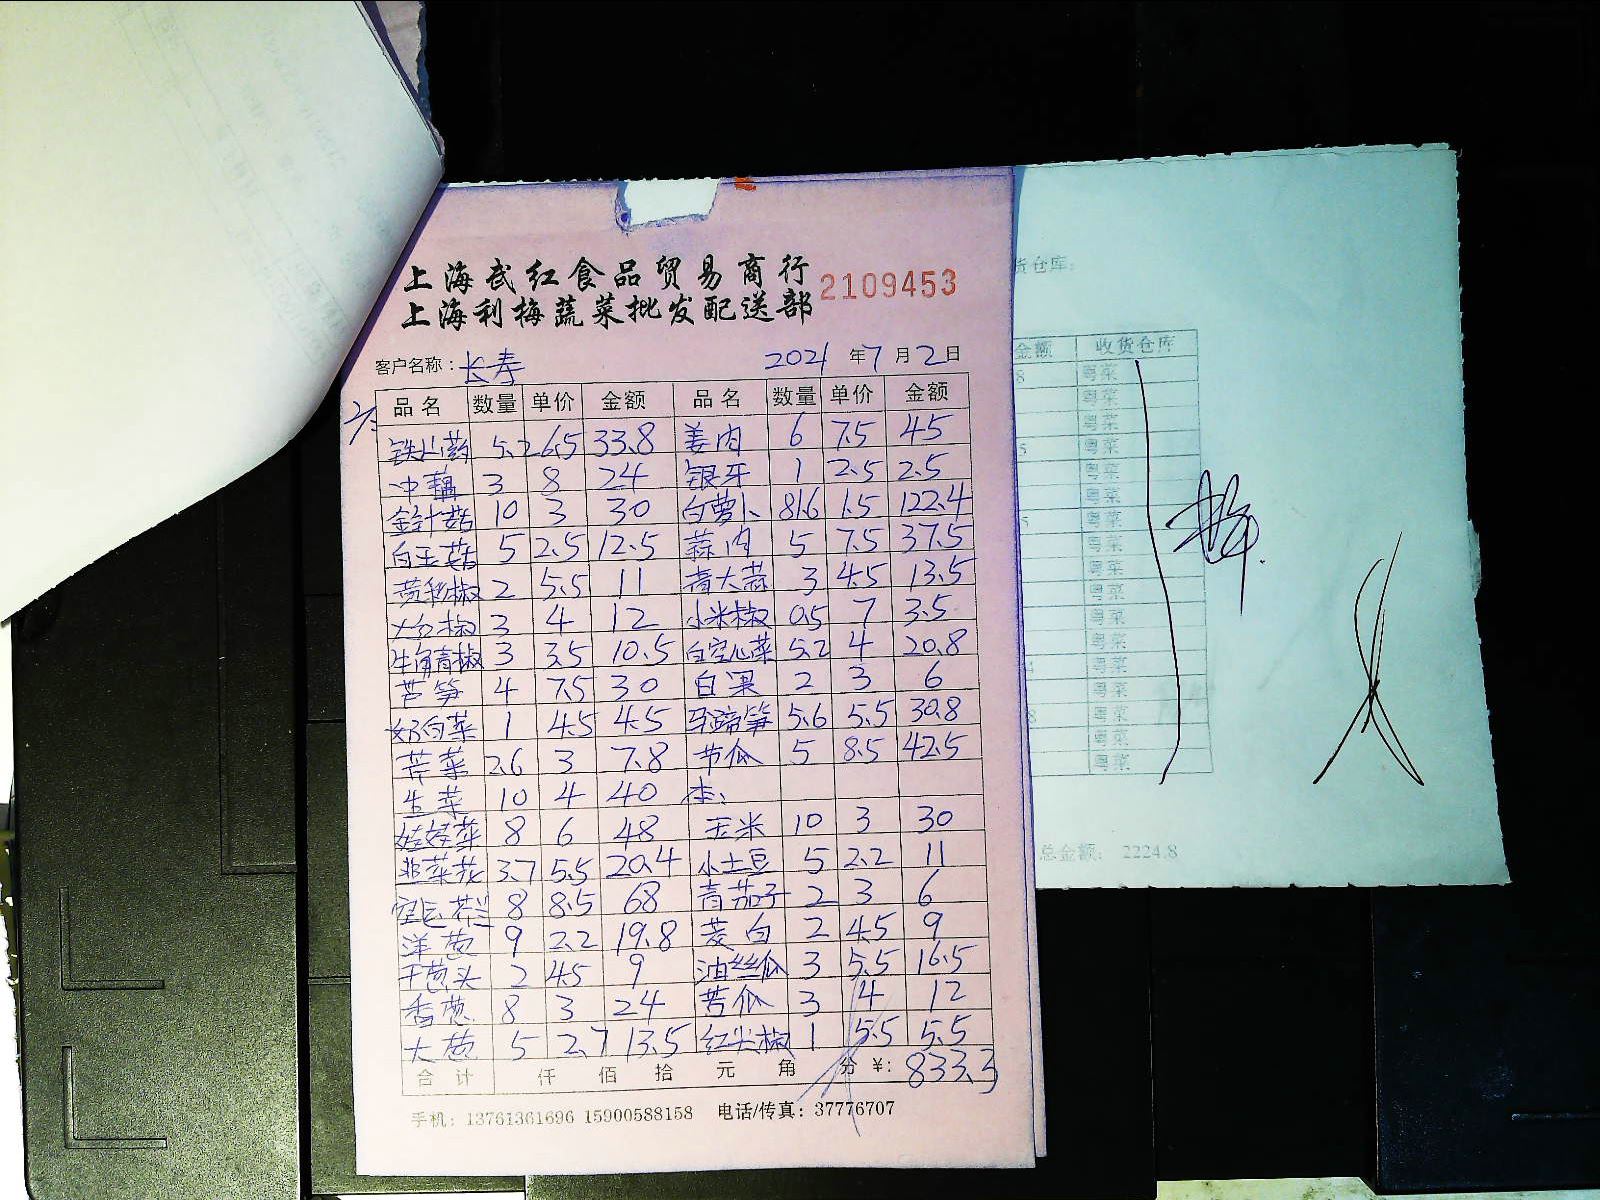 上海武红食品贸易商行
上海利梅蔬菜批发配送部
2109453
客户名称：长寿 2021年7月2日
品名 数量 单价 金额 品名 数量 单价 金额
铁山药 5.2 6.5 33.8 姜肉 6 7.5 45
冲藕 3 8 24 银牙 1 2.5 2.5
金针菇 10 3 30 白萝卜 81.6 1.5 122.4
白玉菇 5 2.5 12.5 蒜肉 5 7.5 37.5
黄彩椒 2 5.5 11 青大蒜 3 4.5 13.5
大红椒 3 4 12 小米椒 0.5 7 3.5
牛角青椒 3 3.5 10.5 白空心菜 5.2 4 20.8
芦笋 4 7.5 30 白果 2 3 6
奶白菜 1 4.5 4.5 马蹄笋 5.6 5.5 30.8
芹菜 2.6 3 7.8 节瓜 5 8.5 42.5
生菜 10 4 40 本：
娃娃菜 8 6 48 玉米 10 3 30
韭菜花 3.7 5.5 20.4 小土豆 5 2.2 11
8 8.5 68 青茄子 2 3 6
洋葱 9 2.2 19.8 茭白 2 4.5 9
干葱头 2 4.5 9 油丝瓜 3 5.5 16.5
香葱 8 3 24 苦瓜 3 4 12
大葱 5 2.7 13.5 红尖椒 1 5.5 5.5
合计 仟 佰 拾 元 角 分 ¥：833.3
手机：13761361696 15900588158 电话/传真：37776707
货仓库：
金额 收货仓库
8 粤菜
粤菜
粤菜
5 粤菜
粤菜
粤菜
5 粤菜
粤菜
粤菜
粤菜
粤菜
粤菜
粤菜
粤菜
8 粤菜
粤菜
粤菜
总金额：2224.8